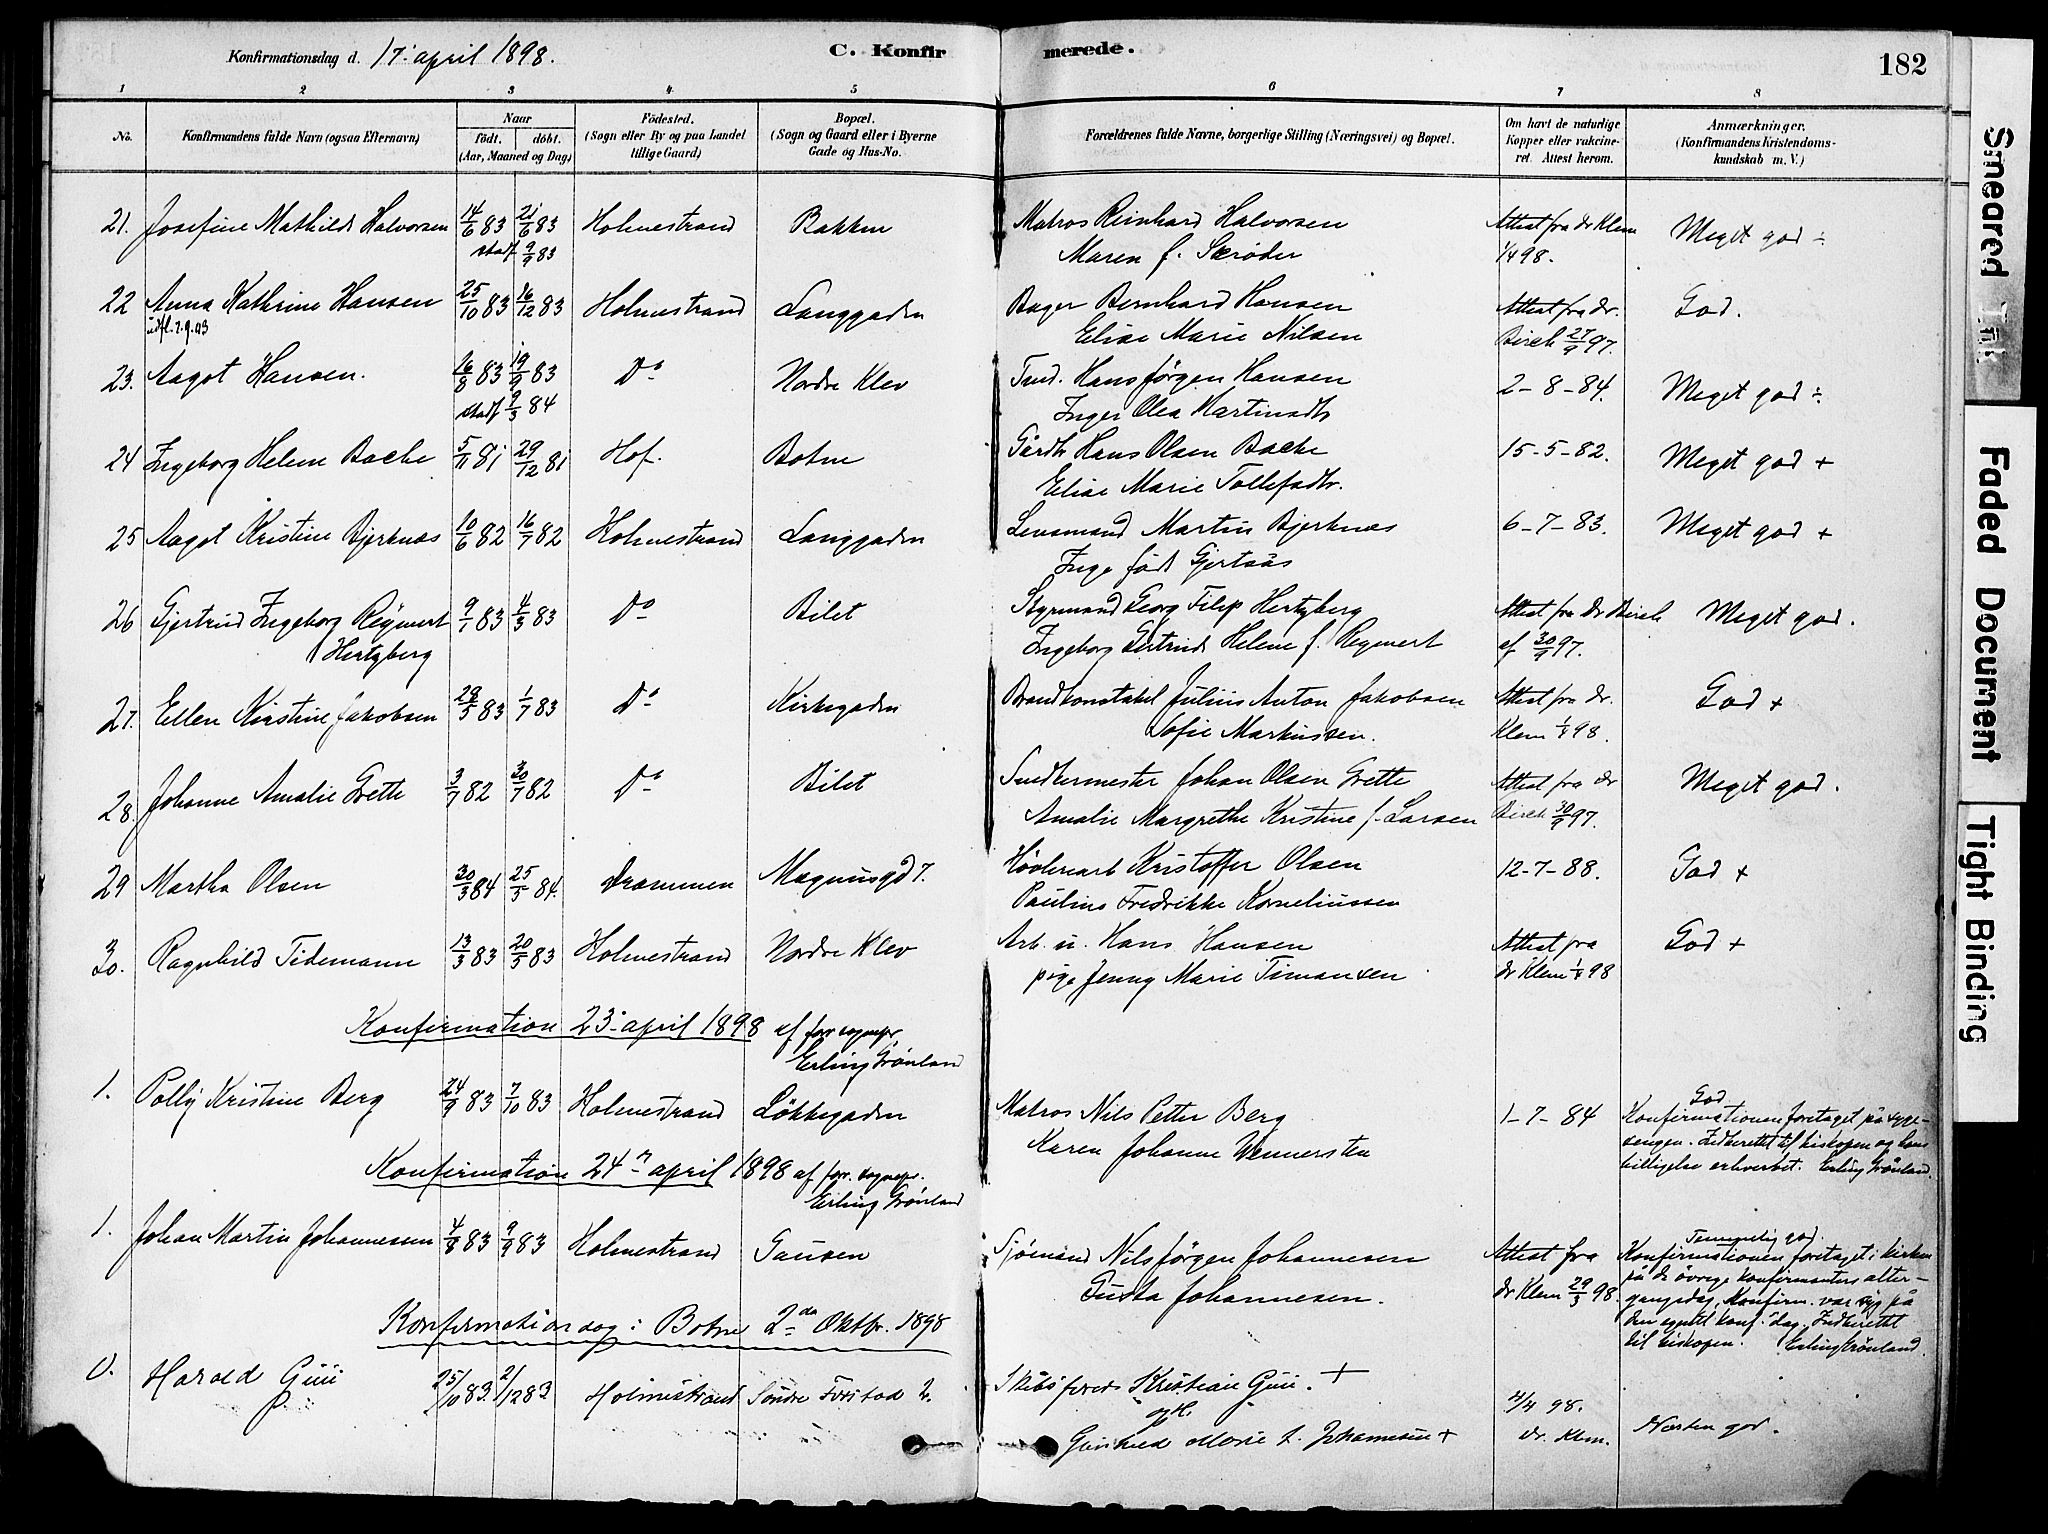 Konfirmationsdag d. 17. april 1898. C. Konfir merede. 182
1 2 3 4 5 6 7 8
No. Konfirmandens fulde Navn (ogsaa Efternavn) Naar født. døbt. (Aar, Maaned og Dag) Fødested. (Sogn eller By og paa Landet tillige Gaard) Bopæl. (Sogn og Gaard eller i Byerne Gade og Hus-No. Forældrenes fulde Navne, borgerlige Stilling (Næringsvei) og Bopæl. Om havt de naturlige Kopper eller vakcineret. Attest herom. Anmærkninger. (Konfirmandens Kristendomskundskab m. V.)
21. Josefine Mathilde Halvorsen 14/6 83 21/6 83 Holmestrand Bakken Matros Reinhard Halvorsen Attest fra dr Klem Meget god ÷
stadf 9/9 83 Maren f. Skrøder 1/4 98.
22 Anna Kathrine Hansen 25/10 83 16/12 83 Holmestrand Langgaden Bager Bernhard Hansen Attest fra dr. God.
udfl. 7.9.43 Elise Marie Nilsen Birch 27/9 97.
23. Aagot Hansen. 16/8 83 19/9 83 Do Nordre Klev Tmd. Hans Jörgen Hansen 2-8-84. Meget god ÷
stadf 9/3 84 Inger Olea Martinsdtr
24 Ingeborg Helene Bache 5/11 81 29/12 81 Hof. Botne Gårdbr Hans Olsen Bache 15-5-82. Meget god +
Elise Marie Tollefsdtr.
25 Aagot Kristine Bjerknæs 10/6 82 16/7 82 Holmestrand Langgaden Lensmand Martin Bjerknæs 6-7-83. Meget god +
Inga født Gjertsås
26 Gjertrud Ingeborg Regnert 9/1 83 4/3 83 Do Bilet Styrmand Georg Filip Hertzberg Attest fra dr Birch Meget god.
Hertzberg Ingeborg Gertrud Helene f. Regnert af 30/9 97.
27. Ellen Kirstine Jakobsen 29/3 83 1/7 83 Do Kirkegaden Brandkonstabel Julius Anton Jakobsen Attest fra dr. God +
Sofie Markussen. Klem 1/4 98.
28. Johanne Amalie Grette 3/7 82 30/7 82 Do Bilet Snedkermester Johan Olsen Grette Attest fra dr Meget god.
Amalie Margrethe Kristine f. Larsen Birch 30/9 97.
29 Martha Olsen 30/3 84 25/5 84. Drammen Magnusgd 7. Høvlerearb Kristoffer Olsen 12-7-88. God +
Pauline Fredrikke Korneliussen
30. Ragnhild Tidemann 13/3 83 20/5 83 Holmestrand Nordre Klev Arb. u. Hans Hansen Attest fra God +
pige Jenny Marie Timansen dr Klem 1/4 98
Konfirmation 23. april 1898 af forr. sognepr.
Erling Grönland
1. Polly Kristine Berg 24/9 83 7/10 83 Holmestrand Løkkegaden Matros Nils Petter Berg 1-7-84 God
Karen Johanne Wennersten Konfirmationen foretaget på syge-
sengen. Indberettet til biskopen og hans
billigelse erhvervet. Erling Grönland.
Konfirmation 24n april 1898 af forr. sognepr.
Erling Grönland
1. Johan Martin Johannessen 4/8 83 9/9 83 Holmestrand Gausen Sjömand Nils Jörgen Johannesen Attest fra Temmelig god.
Gusta Johannesen. dr Klem 29/3 98. Konfirmationen foretaget i kirken
på de øvrige konfirmanters alter-
gangsdag. Konfirm. var syg på
den egentl konf. dag. Indberettet
til biskopen. Erling Grönland.
Konfirmationsdag i Botne 2den Oktbr. 1898
Harald Gui 25/10 83 2/12 83 Holmestrand Søndre Skibsfører Kristian Gui. + 4/4 98. Næsten god.
og H.
Gunhild Marie f. Johannesen + dr. Klem.
Smeared Ink
Faded Document
Tight Binding